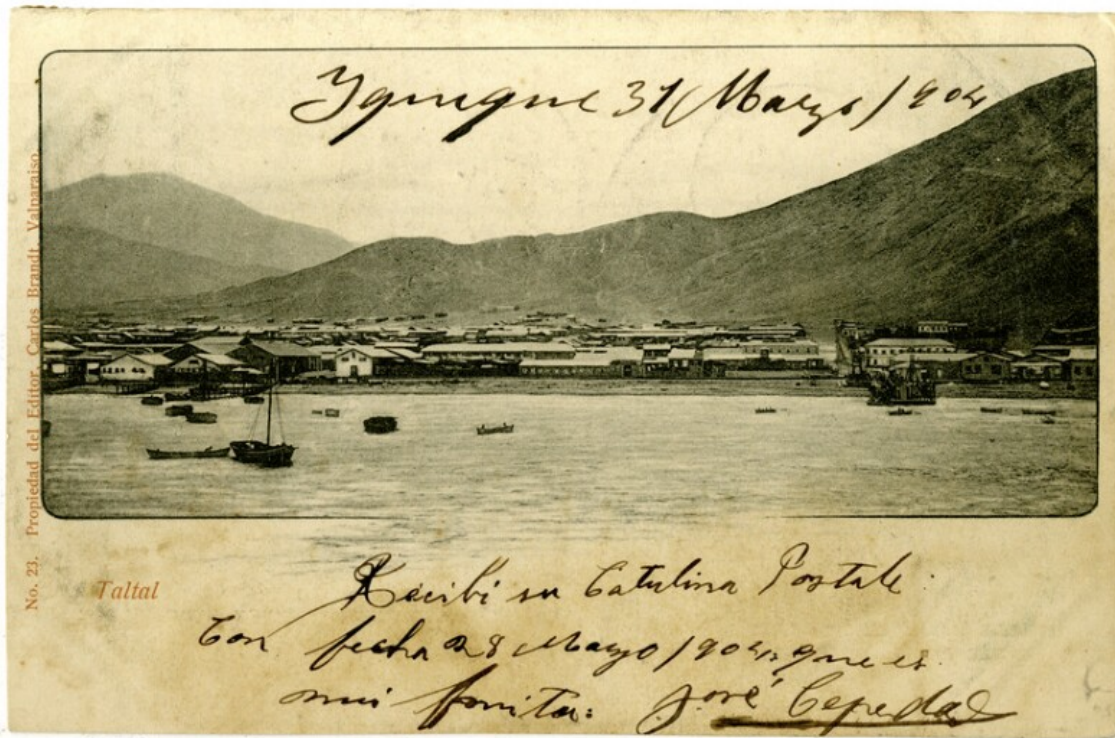 Iquique 31/Marzo/904
No. 23. Propiedad del Editor Carlos Brandt, Valparaiso.
Taltal
Recibi su Catulina Postale.
Con fecha 28 Marzo/904, que es
mui bonita: José Cepeda